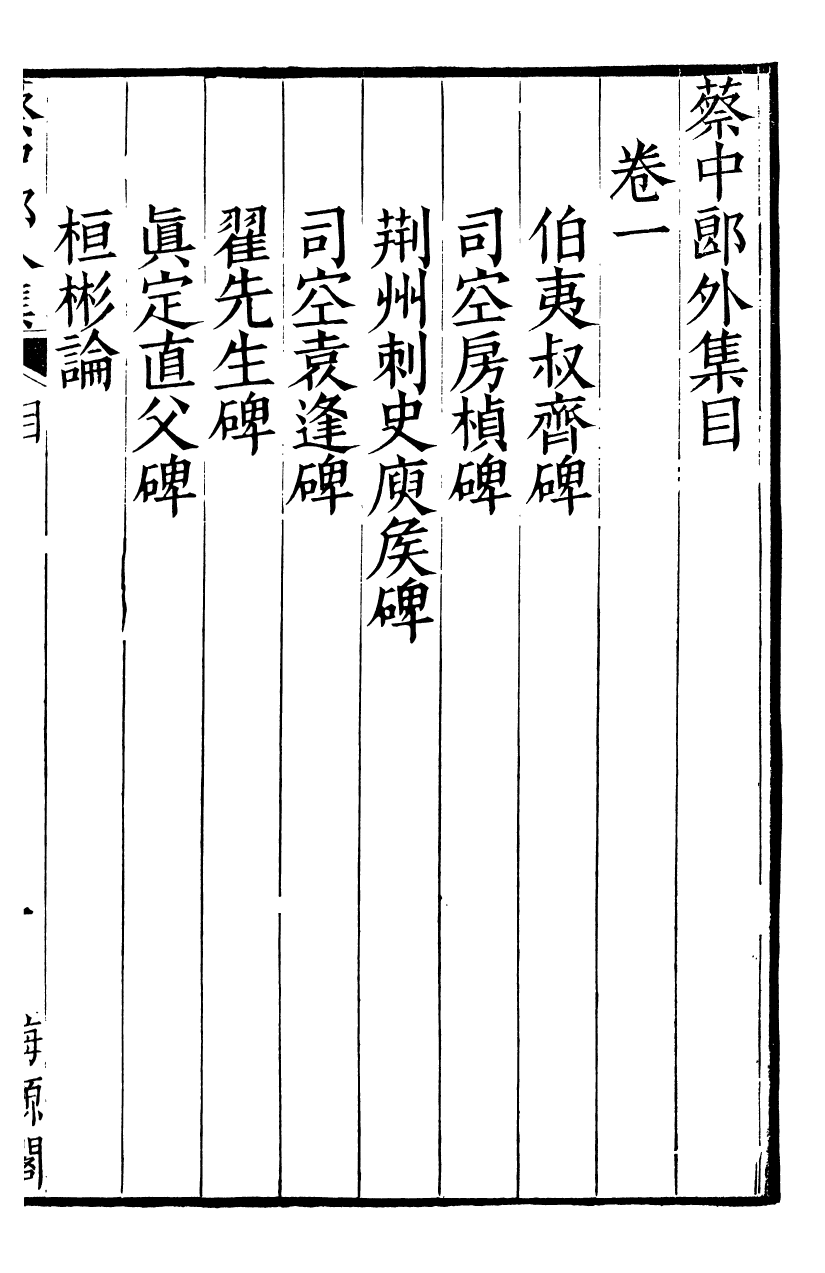 蔡中郎外集目
卷一
伯夷叔齊碑
司空房楨碑
荆州刺史庾矦碑
司空袁逢碑
翟先生碑
眞定直父碑
桓彬論
目
海源閣